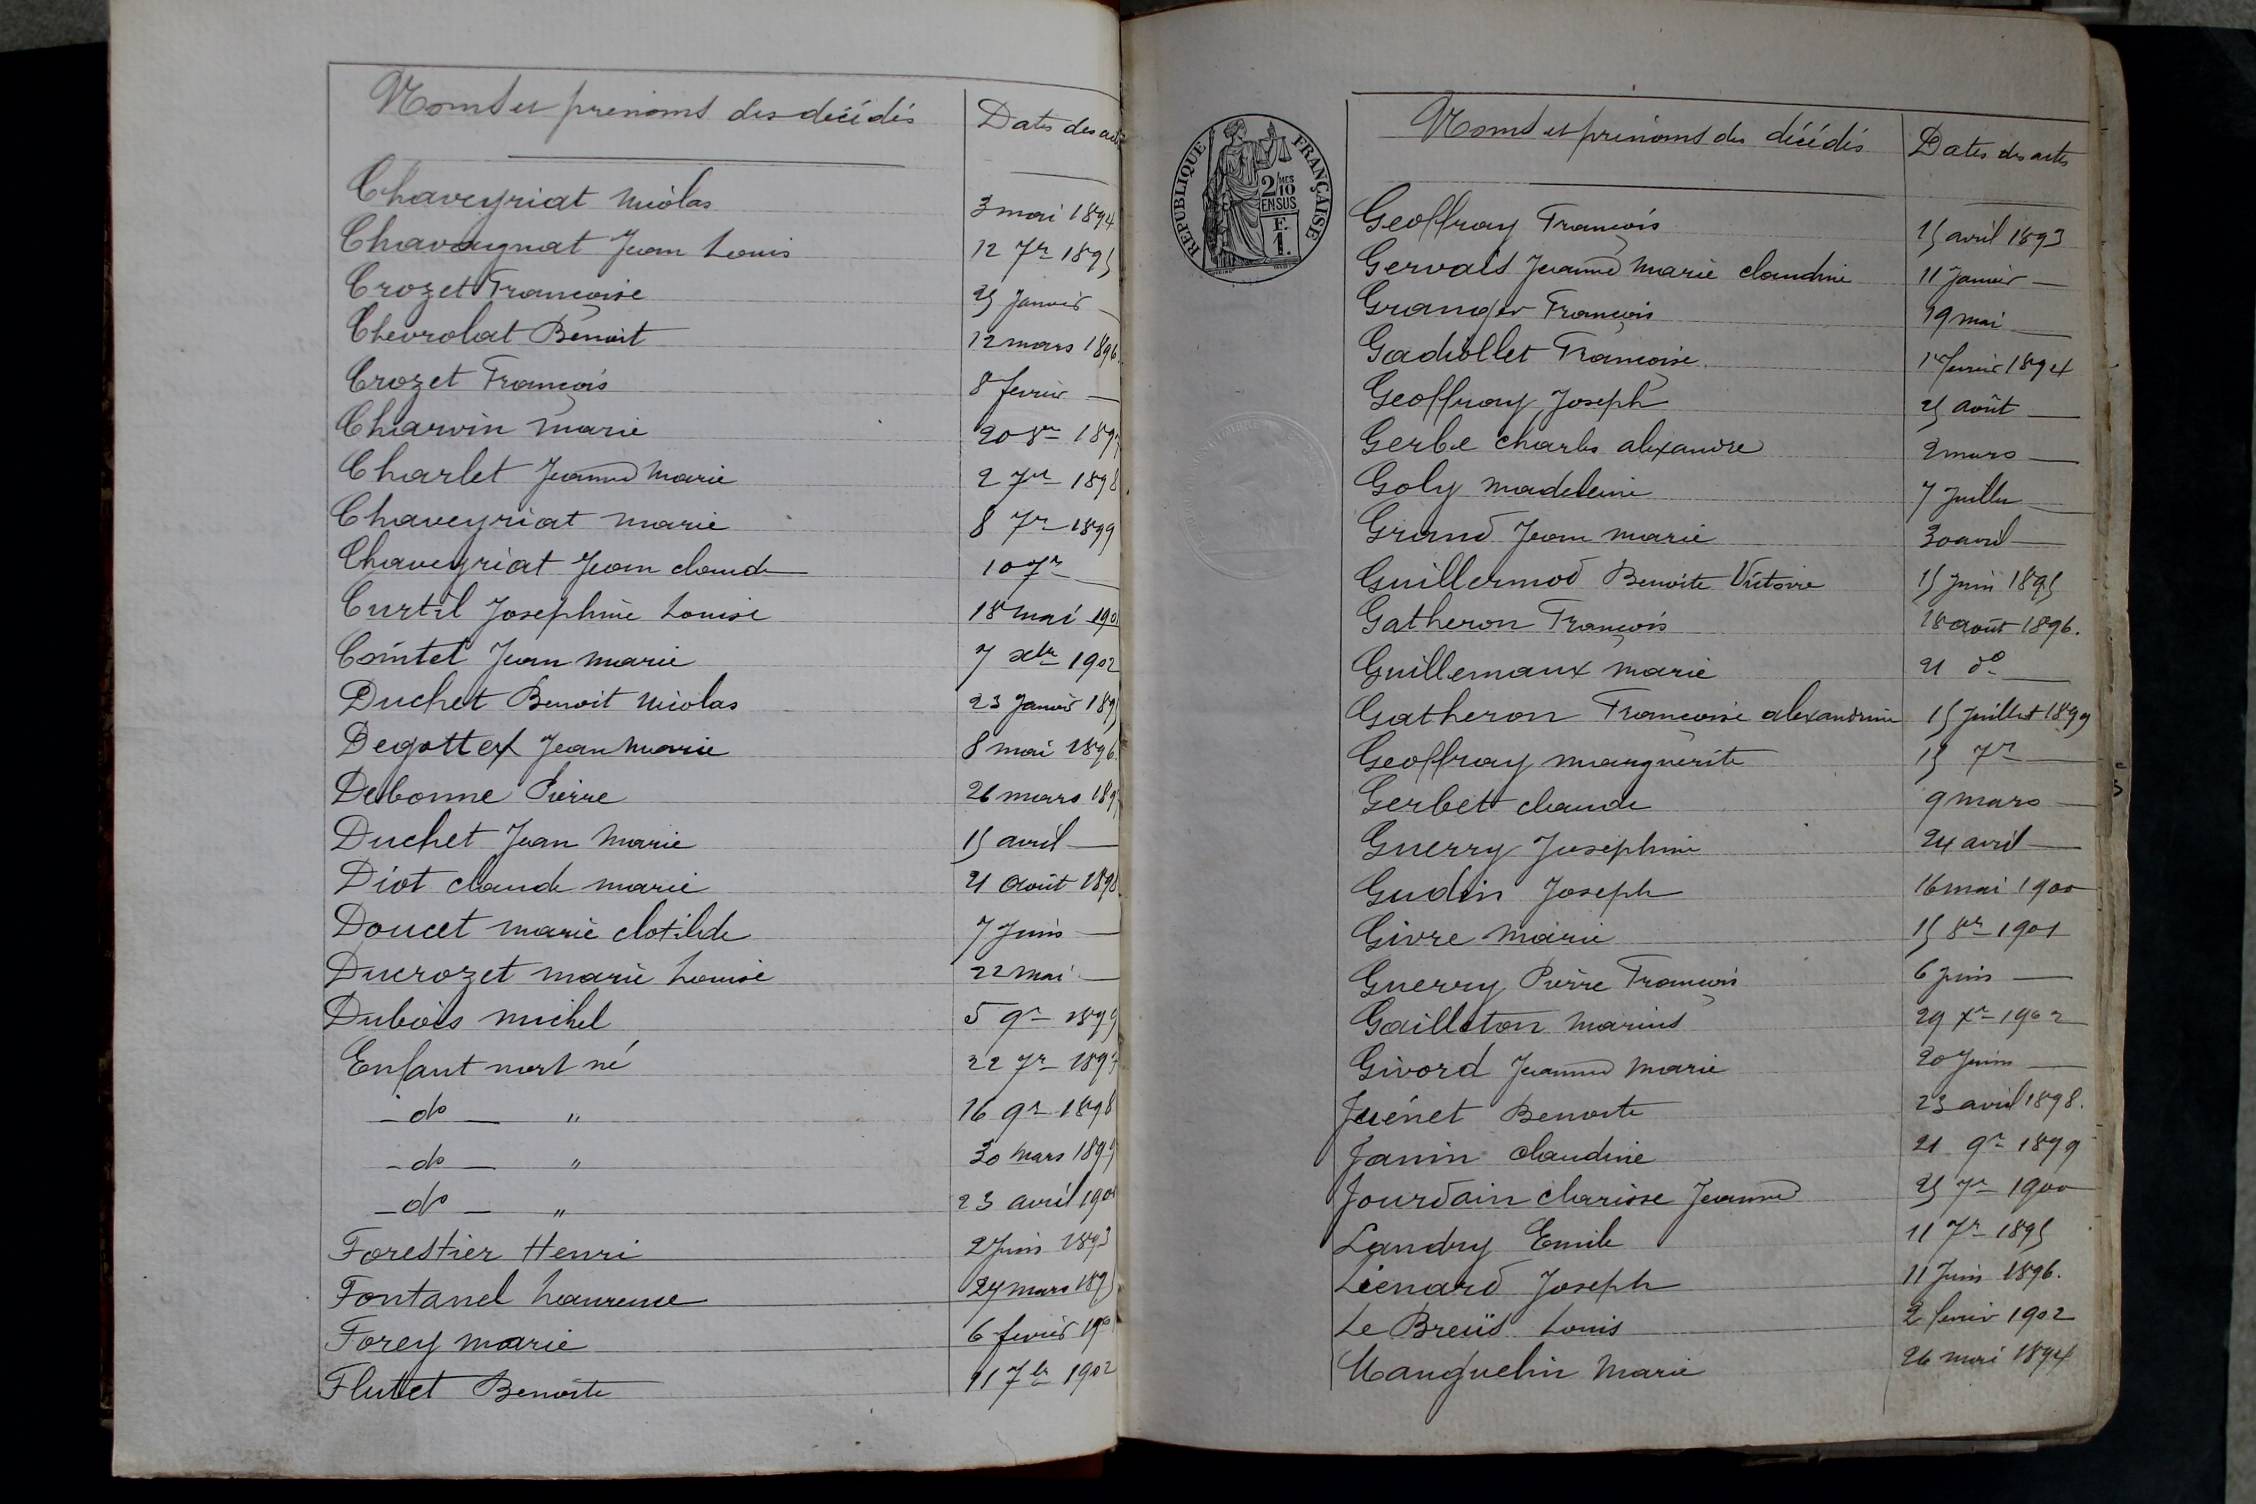 Noms et prénoms des décédés
Dates des actes
Chaveyriat Nicolas 3 mai 1894
Chavaugnat Jean Louis 12 7r 1895
Crozet Françoise 25 Janvier —
Chevrolat Benoit 12 mars 1896
Crozet François 8 fevrier —
Charvin Marie 20 8re 189
Charlet Jeanne Marie 2 7re 1898
Chaveyriat Marie 8 7r 1899
Chaveyriat Jean claude 10 7r —
Curtil Josephine Louise 18 mai 190
Comtet Jean Marie 7 xbre 1902
Duchet Benoit Nicolas 23 Janvier 1895
Degottex Jean Marie 8 mai 1896
Debonne Pierre 26 mars 189
Duchet Jean Marie 15 avril —
Diot claude marie 21 Août 1898
Doucet marie clotilde 7 Juin —
Ducrozet marie Louise 22 mai —
Dubois michel 5 9r 1899
Enfant mort né 22 7r 1897
— do — " 16 9r 1898
— do — " 30 mars 1899
— do — " 23 avril 190
Forestier Henri 2 Juin 1893
Fontanel Laurence 24 mars 1895
Forey Marie 6 fevrier 190
Flutet Benoite 11 7bre 1902
RÉPUBLIQUE FRANÇAISE
2/10 MES
EN SUS
F.
1.
Noms et prénoms des décédés Dates des actes
Geoffray François 15 avril 1893
Gervais Jeanne Marie claudine 11 Janvier —
Granger François 19 mai —
Gadiollet Françoise 1er fevrier 1894
Geoffray Joseph 25 août —
Gerbe charles alexandre 2 mars —
Goly Madeleine 7 Juillet —
Grand Jean Marie 30 avril —
Guillermod Benoite Victoire 15 Juin 1895
Gatheron François 18 août 1896.
Guillemaux Marie 21 do —
Gatheron Françoise alexandrine 15 Juillet 1899
Geoffray Marguerite 15 7r —
Gerbet claude 9 mars —
Guerry Josephine 24 avril —
Gudin Joseph 16 mai 1900
Givre Marie 15 8r 1901
Guerry Pierre François 6 juin —
Gailleton Marius 29 xr 1902
Givord Jeanne Marie 20 Juin —
Juénet Benoite 23 avril 1898.
Janin Claudine 21 9r 1899
Jourdain clarisse Jeanne 25 7r 1900
Landry Emile 11 7r 1895
Lienard Joseph 11 Juin 1896.
Le Breüs Louis 2 fevrier 1902
Manguelin Marie 26 mai 1894